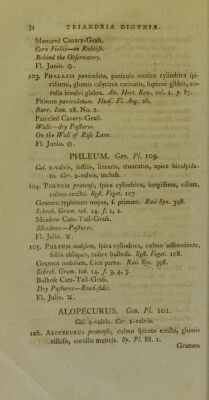 34 TRIANDRIA DIGYNIA.
Manured Canary-Graſs.
Corn Fields—on Rubbiſh.
Behind the Obſervatory.
Fl. Junio. ☉.
103. PHALARIS paniculata, panicula mutica cylindrica ſpi-
ciformi, glumis calycinis carinatis, ſuperne gibbis, co-
rolla bivalvi glabra. Ait. Hort. Kew. vol. 1. p. 87.
Phleum paniculatum. Hudſ. Fl. Ang. 26.
Barr. Icon. 28. No. 2.
Panicled Canary-Graſs.
Walls—dry Paſtures.
On the Wall of Roſe Lane.
Fl. Junio. ☉.
PHLEUM. Gen. Pl. 109.
Cal. 2-valvis, ſeſſilis, linearis, truncatus, apice bicuſpida-
to. Cor. 2-valvis, incluſa.
104. PHLEUM pratenſe, ſpica cylindrica, longiſſima, ciliata,
culmo erecto. Syſt. Veget. 107.
Gramen typhinum majus, ſ. primum. Raii Syn. 398.
Schreb. Gram. tab. 14. f. 1, 2.
Meadow Cats-Tail-Graſs.
Meadows—Paſtures.
Fl. Julio. ♃.
105. PHLEUM nodoſum, ſpica cylindrica, culmo adſcendente,
foliis obliquis, radice bulboſa. Syſt. Veget. 108.
Gramen nodoſum, ſpica parva. Raii Syn. 398.
Schreb. Gram. tab. 14. f. 3, 4, 5.
Bulboſe Cats-Tail-Graſs.
Dry Paſtures—Road-ſides.
Fl. Julio. ♃.
ALOPECURUS. Gen. Pl. 101.
Cal. 2-valvis. Cor. 1-valvis.
106. ALOPECURUS pratenſis, culmo ſpicato erecto, glumis
villoſis, corollis muticis. Sp. Pl. 88. 1.
Gramen